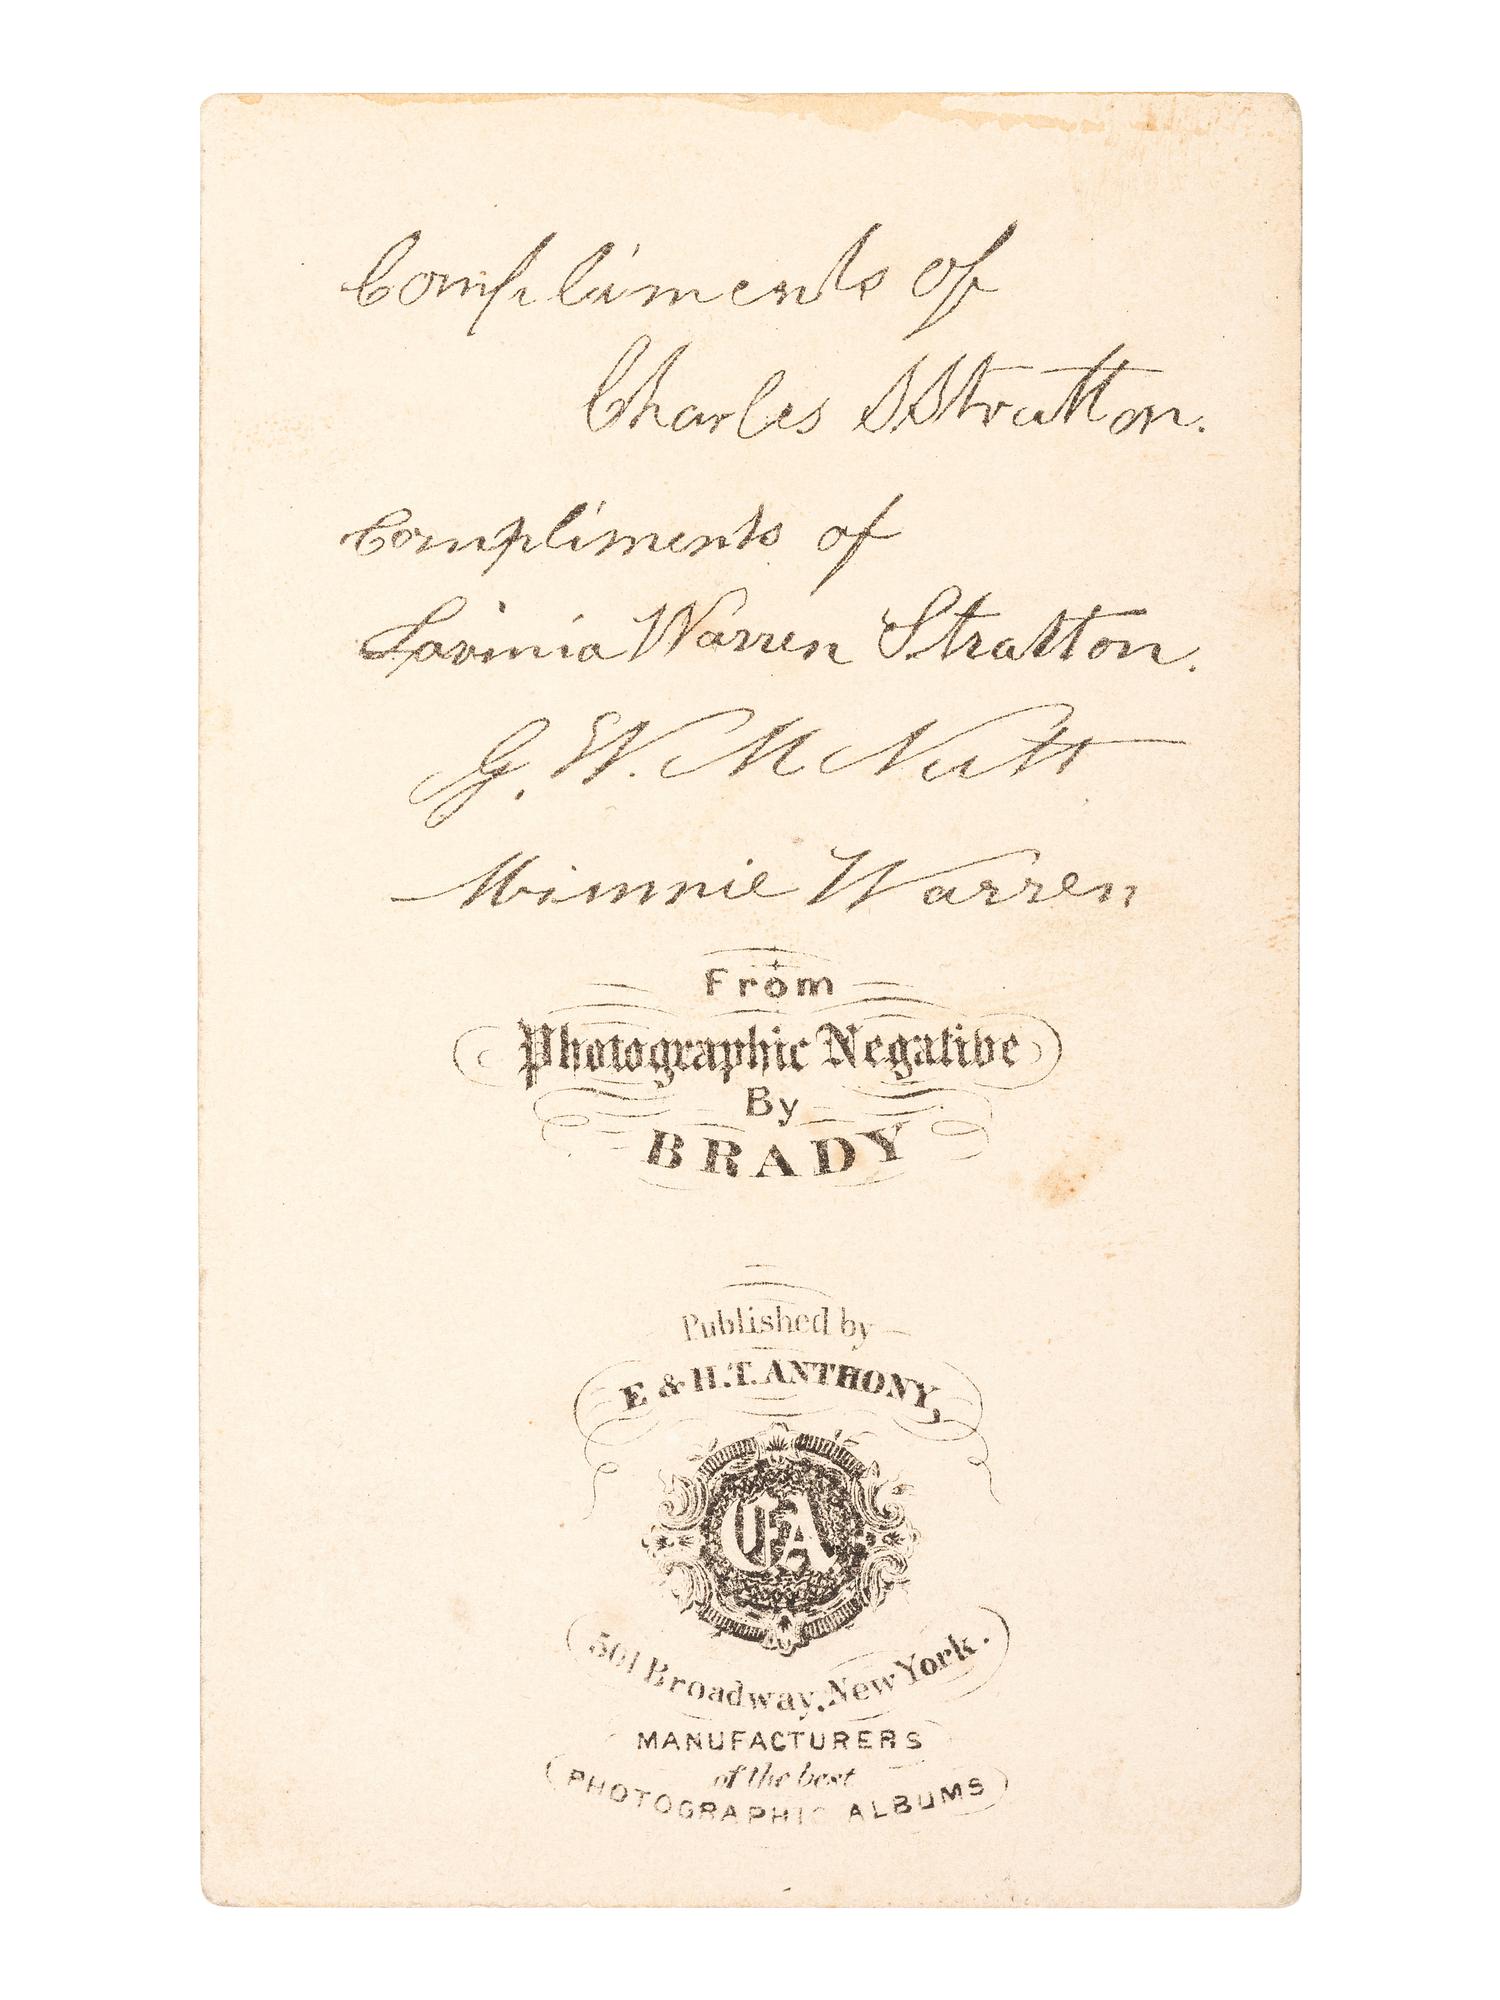 Compliments of
Charles S Stratton.
Compliments of
Lavinia Warren Stratton.
G. W. M Nutt
Minnie Warren
From
Photographic Negative
By
BRADY
Published by
E & H.T. ANTHONY,
EA
501 Broadway, New York.
MANUFACTURERS
of the best
PHOTOGRAPHIC ALBUMS